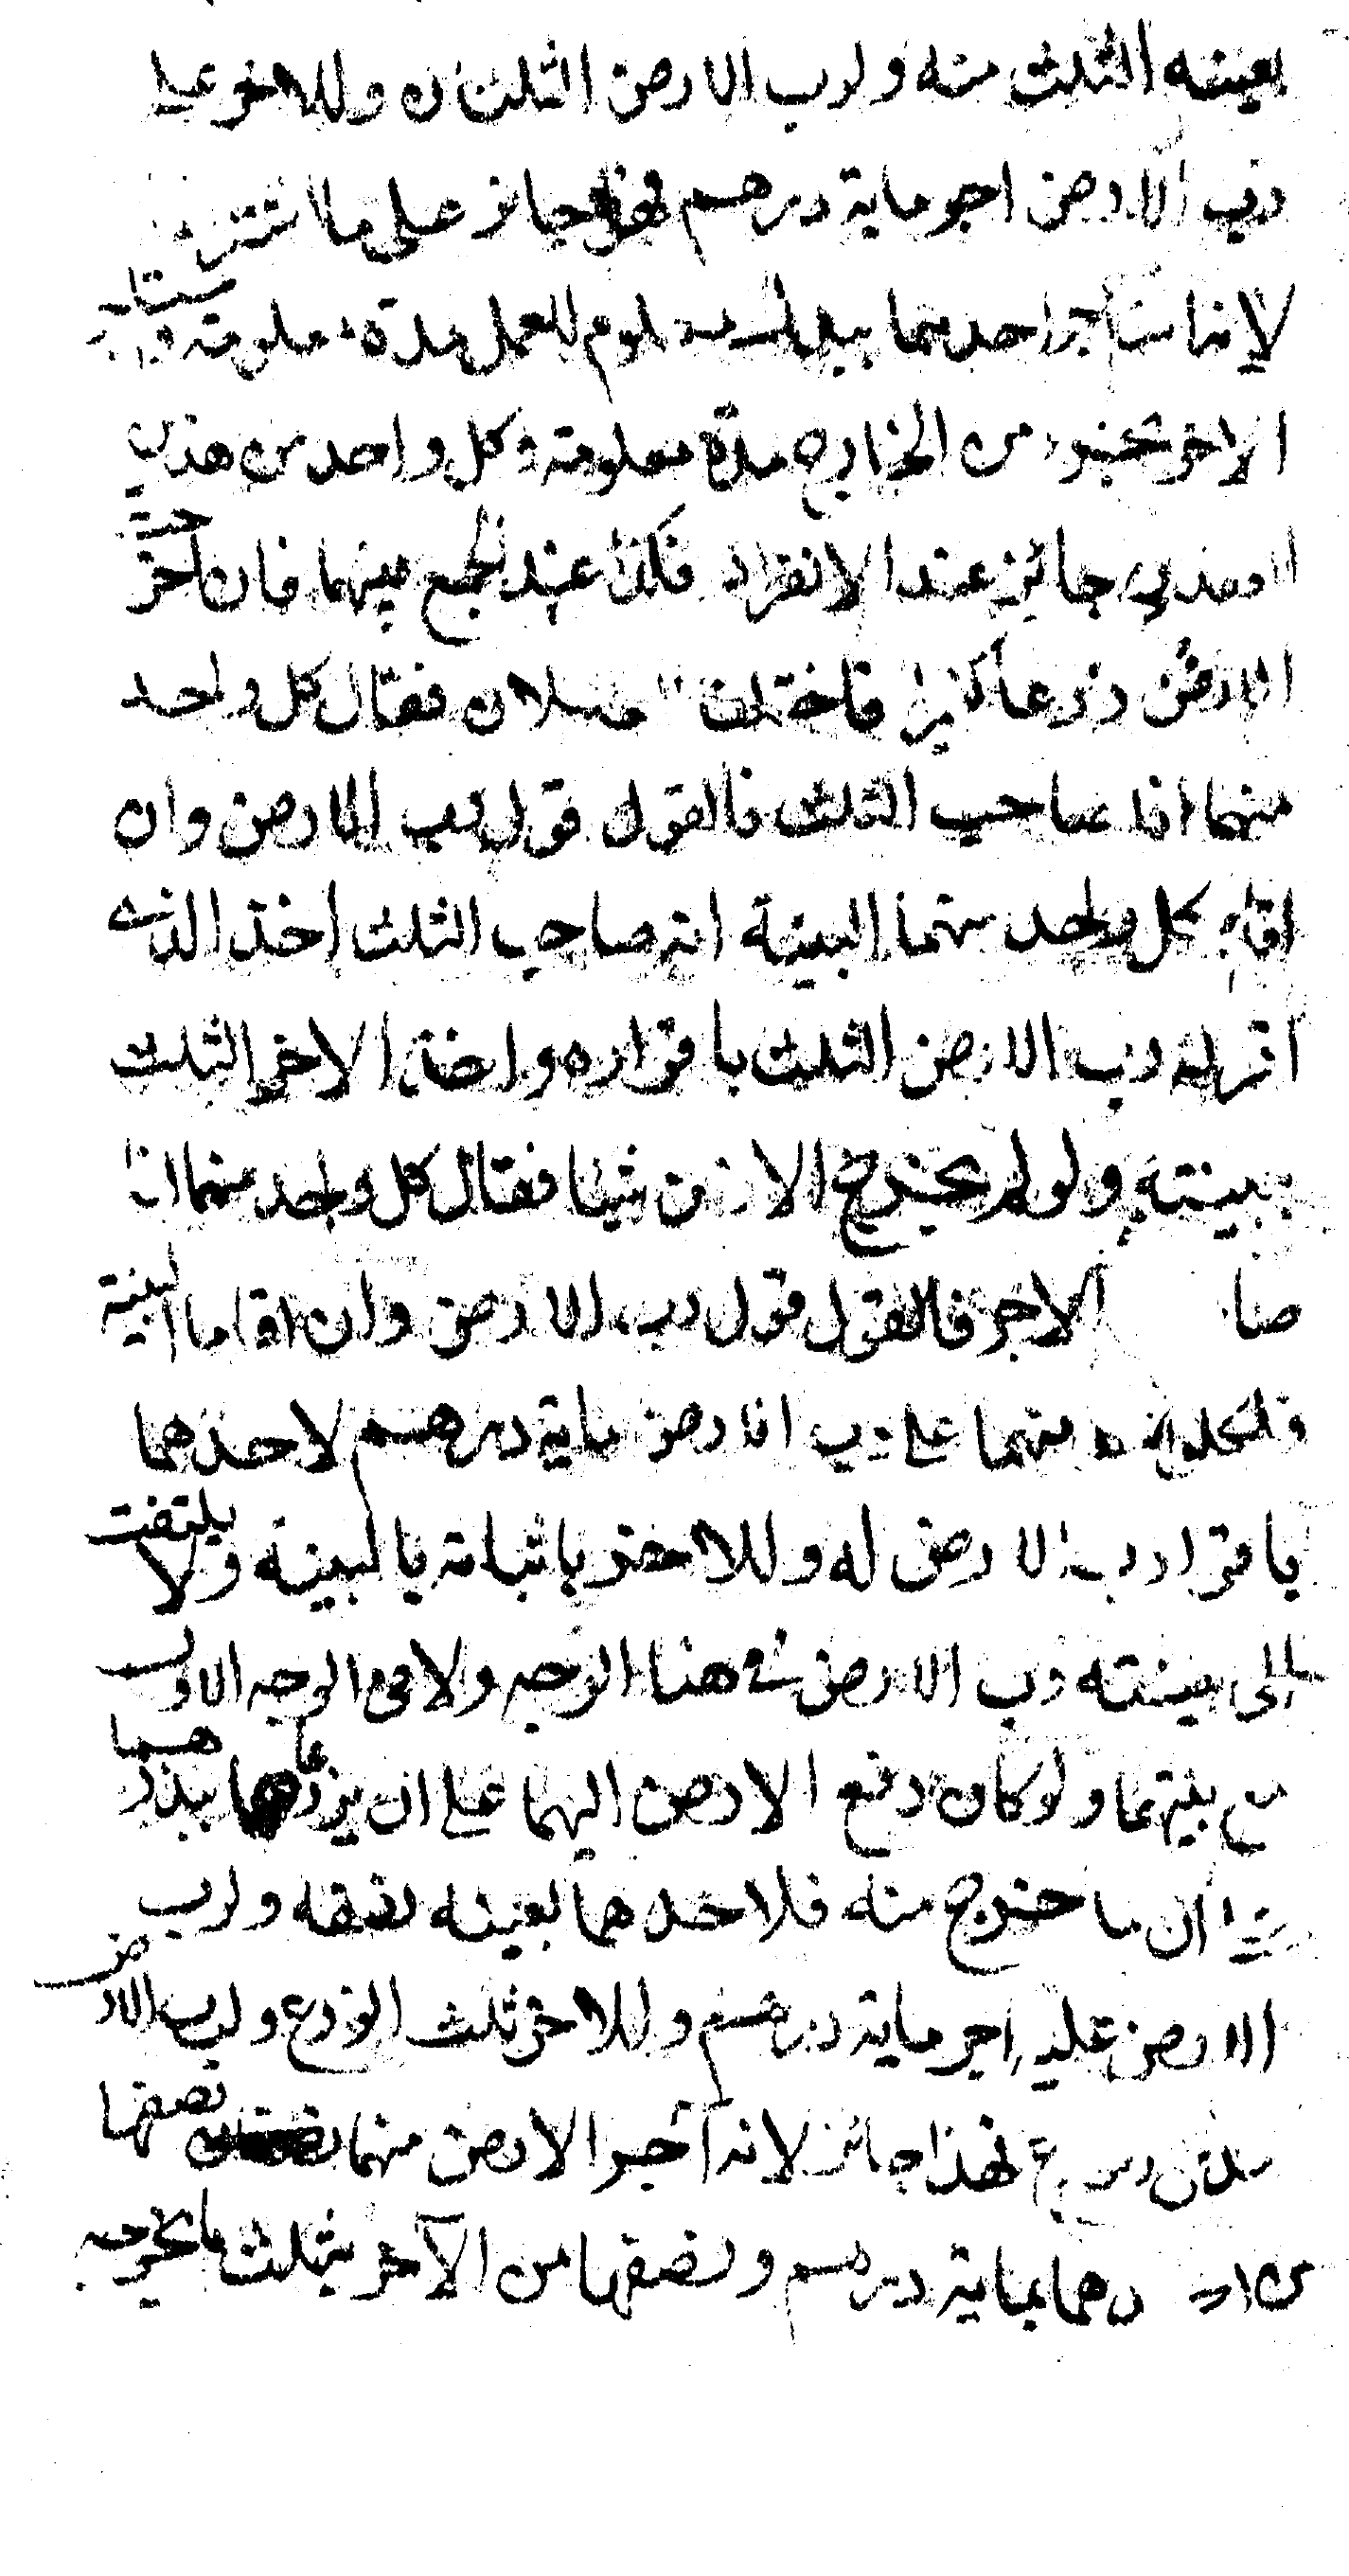 بعينه الثلث منه ولرب الارض الثلثان وللاخر على
رب الارض اجر ماية درهم فهذا جايز على ما اشترطا
لانه استاجر احدهما ببدل معلوم للعمل مدة معلومة واستاجر
الاخر بجزء من الخارج مدة معلومة وكل واحد من هذين
العقدين جائز عند الانفراد فكذا عند الجمع بينهما فان اخرجت
الارض زرعا كثيرا فاختلف العاملان فقال كل واحد
منهما انا صاحب الثلث فالقول قول رب الارض وان
اقام كل واحد منهما البينة انه صاحب الثلث اخذ الذي
اقر له رب الارض الثلث باقراره واخذ الاخر الثلث
ببينته ولو لم يخرج الارض شيئا فقال كل واحد منهما انا
صاحب الاجر فالقول قول رب الارض وان اقاما البينة
فلكل واحد منهما على رب الارض ماية درهم لاحدهما
باقرار رب الارض له وللاخر باثباته بالبينة ولا يلتفت
الى بينته رب الارض في هذا الوجه ولا في الوجه الاول
مع بينتهما ولو كان دفع الارض اليهما على ان يزرعاها ببذرهما
على ان ما خرج منه فلاحدهما بعينه نصفه ولرب
الارض عليه اجر ماية درهم وللاخر ثلث الزرع ولرب الارض
سدس الزرع فهذا جائز لانه آجر الارض منهما نصفها
من احدهما بماية درهم ونصفها من الآخر بثلث ما يخرجه